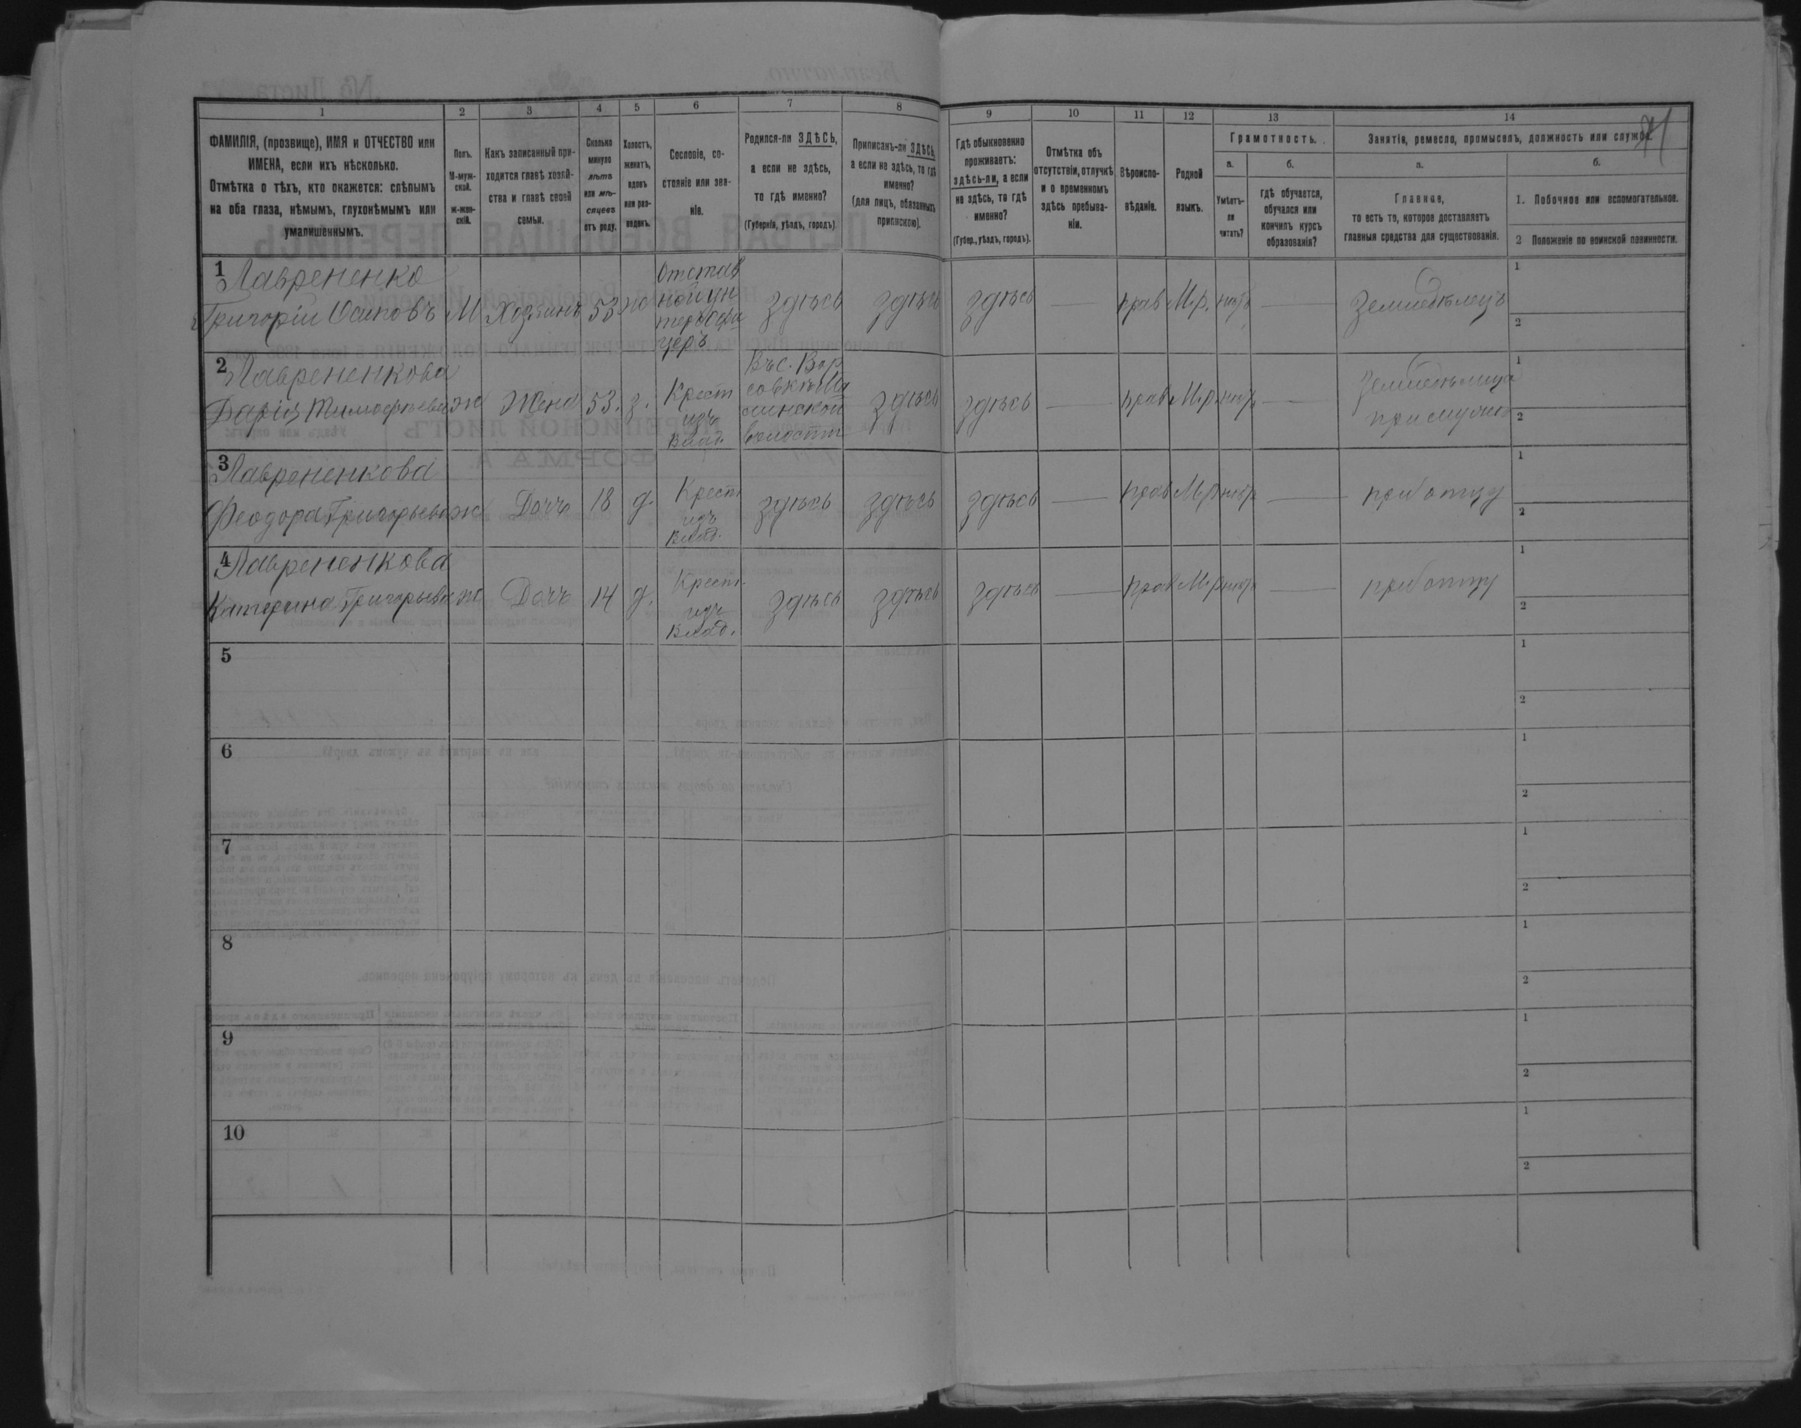 1
2
3
4
5
6
7
8
ФАМИЛІЯ, (прозвище), ИМЯ и ОТЧЕСТВО или
ИМЕНА, если ихъ нѣсколько.
Отмѣтка о тѣхъ, кто окажется: слѣпымъ
на оба глаза, нѣмымъ, глухонѣмымъ или
умалишеннымъ.
Полъ.
М-муж-
ской.
ж-жен-
скій.
Какъ записанный при-
ходится главѣ хозяй-
ства и главѣ своей
семьи.
Сколько
минуло
лѣтъ
или мѣ-
сяцевъ
отъ роду.
Холостъ,
женатъ,
вдовъ
или раз-
веденъ.
Сословіе, со-
стояніе или зва-
ніе.
Родился-ли ЗДѢСЬ,
а если не здѣсь,
то гдѣ именно?
(Губернія, уѣздъ, городъ).
Приписанъ-ли ЗДѢСЬ,
а если не здѣсь, то гдѣ
именно?
(для лицъ, обязанныхъ
припискою).
9
10
11
12
13
14
Гдѣ обыкновенно
проживаетъ:
здѣсь-ли, а если
не здѣсь, то гдѣ
именно?
(Губер., уѣздъ, городъ).
Отмѣтка объ
отсутствіи, отлучкѣ
и о временномъ
здѣсь пребыва-
ніи.
Вѣроиспо-
вѣданіе.
Родной
языкъ.
Грамотность.
а.
Умѣетъ-
ли
читать?
б.
гдѣ обучается,
обучался или
кончилъ курсъ
образованія?
Занятіе, ремесло, промыселъ, должность или служба.
а.
Главное,
то есть то, которое доставляетъ
главныя средства для существованія.
б.
1. Побочное или вспомогательное.
2 Положеніе по воинской повинности.
1 Лаврененко
Григорій Осиповъ М Хозяинъ 53 ж
Отстав
ной ун
теръ офи
церъ
здѣсь здѣсь здѣсь — прав М.р. нѣтъ — Земледѣлецъ
1
2
2 Лаврененкова
Дарія Тимофѣева ж Жена 53. з.
Крест
изъ
влад.
Въ с. Вор
волости
здѣсь здѣсь — прав М.р. нѣтъ —
Земледѣлица
при мужѣ
1
2
3 Лаврененкова
Феодора Григорьева ж Дочь 18 д.
Крест
изъ
влад.
здѣсь здѣсь здѣсь — прав М.р. нѣтъ — при отцу
1
2
4 Лаврененкова
Катерина Григорьева ж Дочь 14 д.
Крест.
изъ
влад.
здѣсь здѣсь здѣсь — прав М.р. нѣтъ — при отцу
1
2
5
1
2
6
1
2
7
1
2
8
1
2
9
1
2
10
1
2